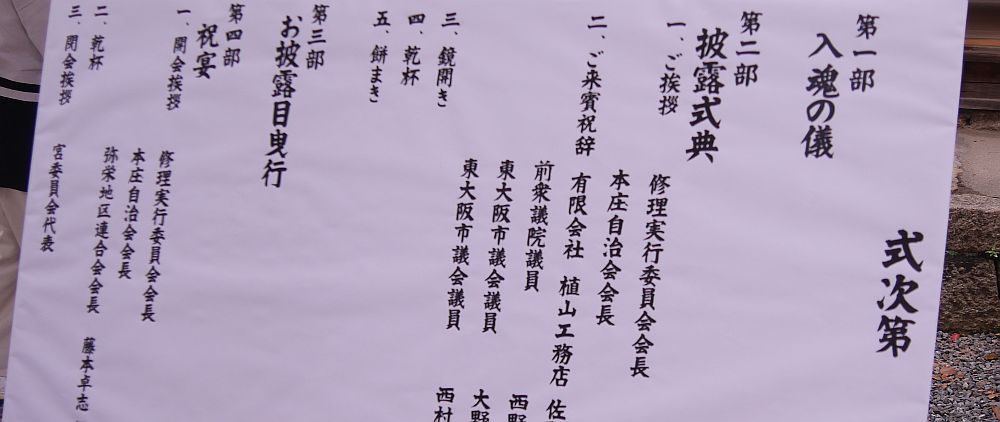 式次第
第一部
入魂の儀
第二部
披露式典
一、ご挨拶
修理実行委員会会長
本庄自治会会長
二、ご来賓祝辞
有限会社 植山工務店 佐
前衆議院議員 西野
東大阪市議会議員 大野
東大阪市議会議員 西村
三、鏡開き
四、乾杯
五、餅まき
第三部
お披露目曳行
第四部
祝宴
一、開会挨拶
修理実行委員会会長
本庄自治会会長
二、乾杯
弥栄地区連合会会長 藤本卓志
三、閉会挨拶
宮委員会代表